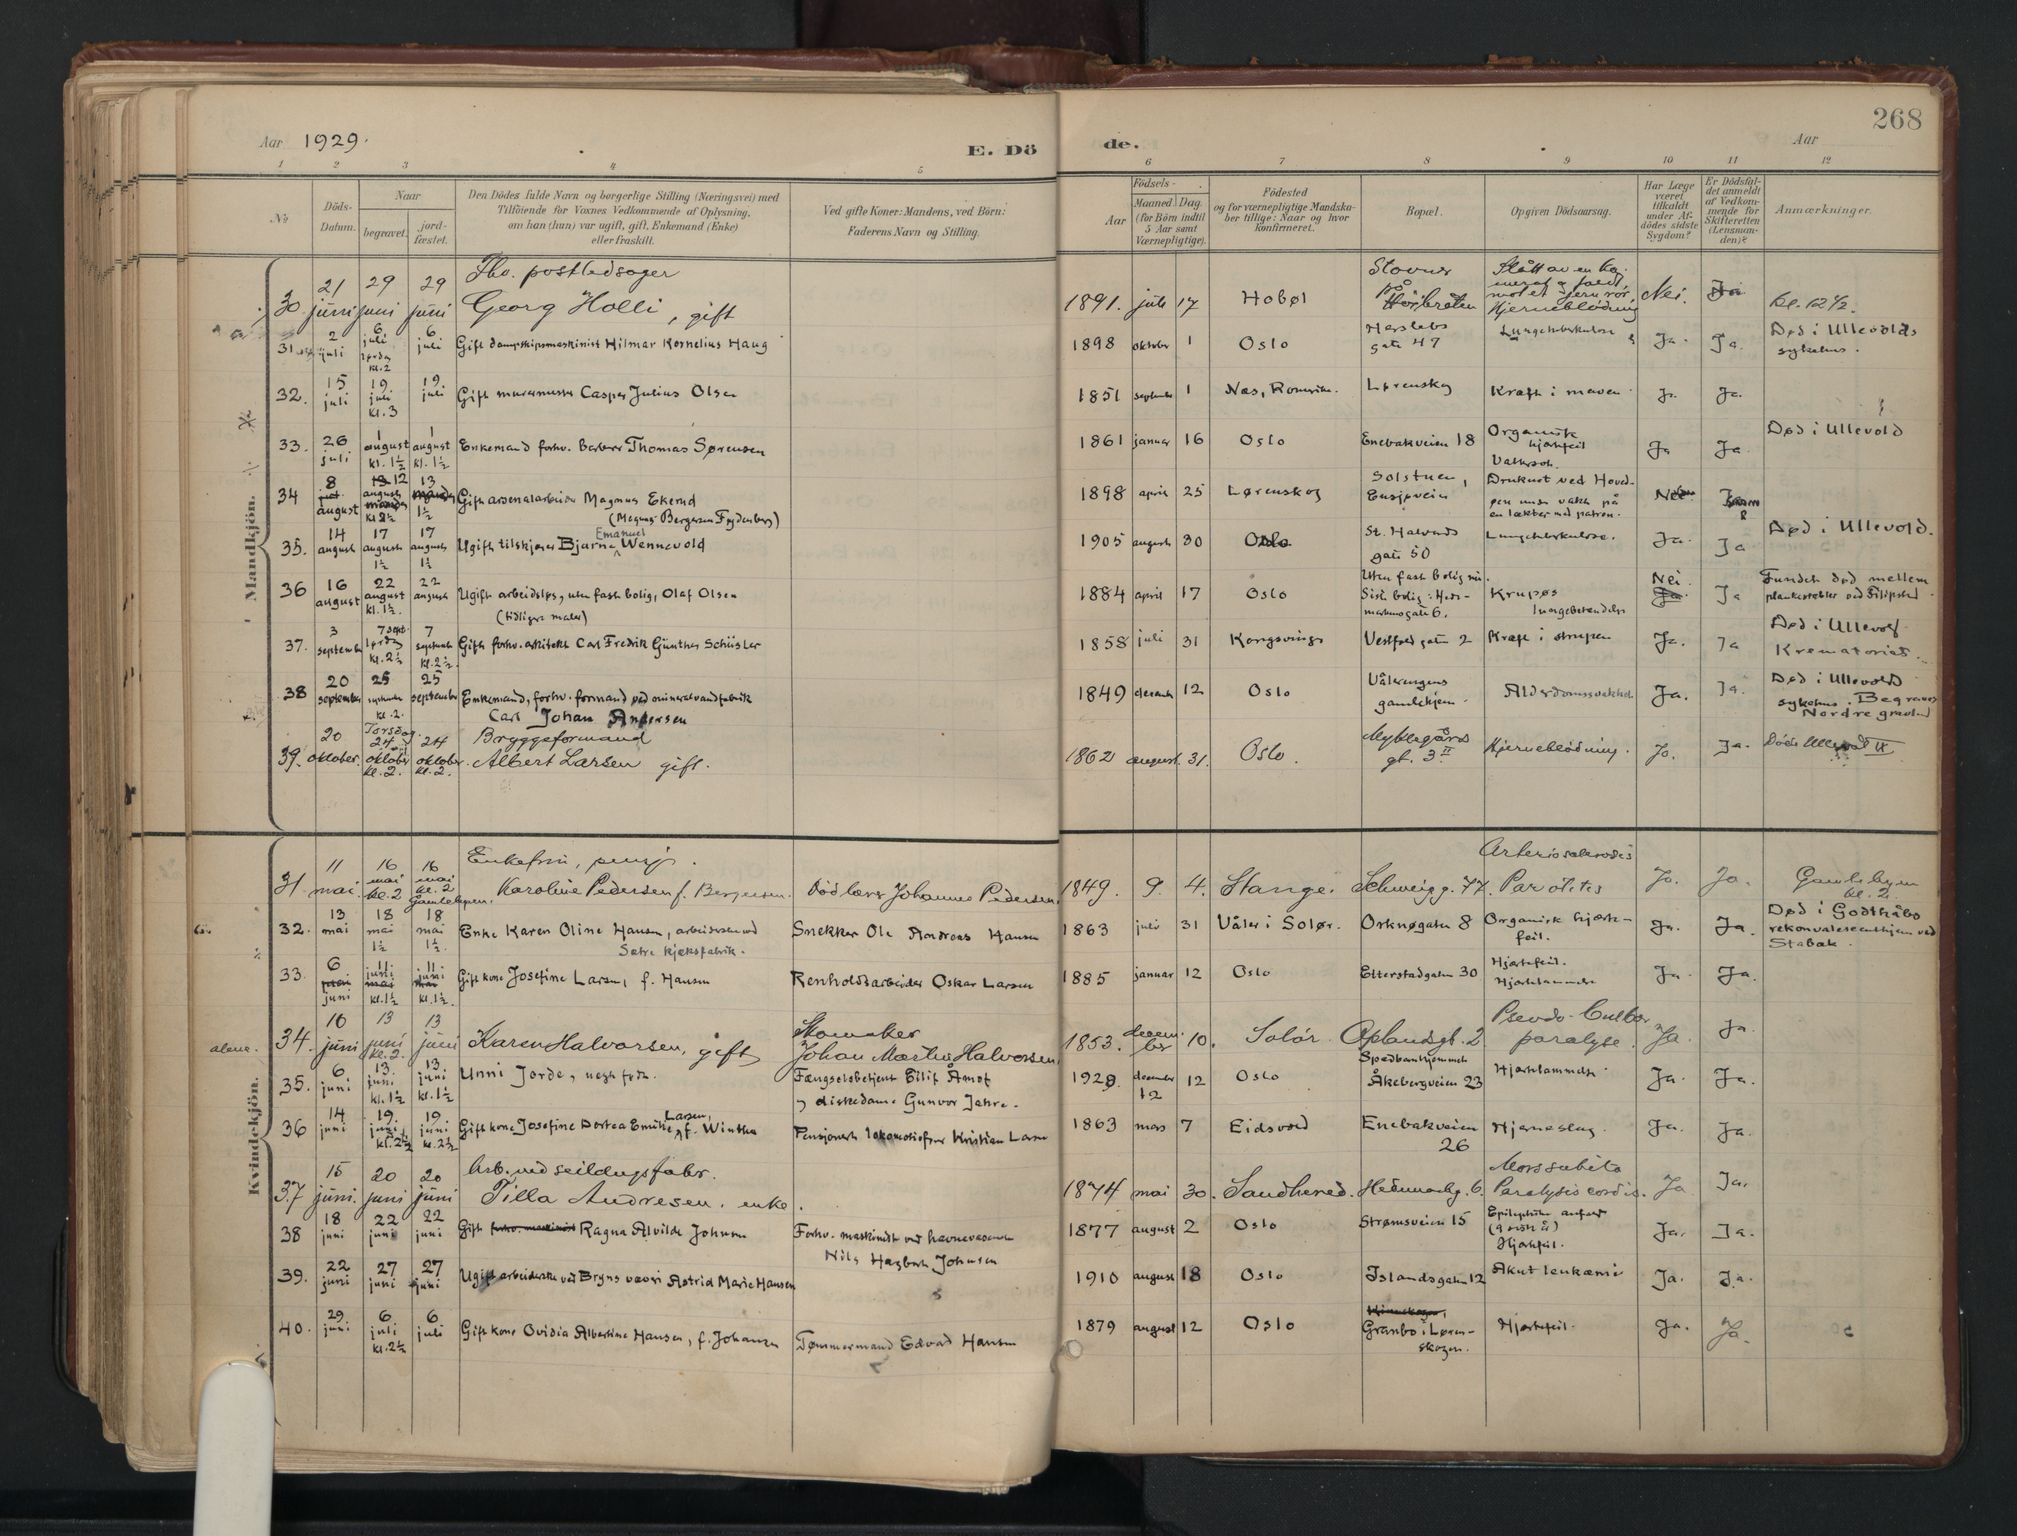 268
Aar 1929.
E. Dö
de.
Aar
1 2 3 4 5 6 7 8 9 10 11 12
No
Döds-
Datum.
Naar
begravet.
jord-
fæstet.
Den Dödes fulde Navn og borgerlige Stilling (Næringsvei) med
Tilföiende for Voxnes Vedkommende af Oplysning,
om han (hun) var ugift, gift, Enkemand (Enke)
eller fraskilt.
Ved gifte Koner: Mandens, ved Börn:
Faderens Navn og Stilling.
Födsels-
Aar
Maaned Dag.
(for Börn indtil
5 Aar samt
Værnepligtige).
Födested
og for værnepligtige Mandska-
ber tillige: Naar og hvor
konfirmeret.
Bopæl.
Opgiven Dödsaarsag.
Har Læge
været
tilkaldt
under Af-
dödes sidste
Sygdom?
Er Dödsfal-
det anmeldt
af Vedkom-
mende for
Skifteretten
(Lensman-
den)?
Anmærkninger.
Mandkjön.
30 21 juni 29 juni 29 juni Fhv. postledsager
Georg Holli, gift
1891. juli 17 Hobøl Stovner på Hørbråten
Slått av en
Hjerneblødning Nei. Ja kl. 12 1/2.
31 2 juli 6 juli lørdag kl. 2 6 juli Gift dampskipsmaskinist Hilmar Kornelius Haug
1898 oktober 1 Oslo Herslebs gate 47 Lungetuberkulose Ja. Ja. Død i Ullevolds
sykehus.
32. 15 juli 19 juli kl. 3 19 juli Gift murermester Casper Julius Olsen
1851 september 1 Nes, Romerike. Lørenskog Kræft i maven Ja Ja.
33. 26 juli 1 august kl. 1 1/2 1 august kl. 1 1/2 Enkemand forhv. Barberer Thomas Sørensen
1861 januar 16 Oslo Enebakveien 18 Organisk
hjertefeil
Vattersot. Ja Ja Død i Ullevold
34 8 august 12 august kl 2 1/2 13 1 1/2 Gift arsenalarbeider Magnus Ekerud
(Magnus Bergersen Fjydenberg)
1898 april 25 Lørenskog Solstuen,
Ensjøveien Druknet ved Hoved-
øen under vakt på
en lekter med patron.
35. 14 august 17 august 1 1/2 17 august 1 1/2 Ugift tilskjærer Bjarne Emanuel Wennevold
1905 august 30 Oslo St. Halvards
gate 50 Lungetuberkulose. Ja. Ja Død i Ullevold.
36 16 august 22 august kl. 1 1/2. 22 august Ugift arbeidsløs, uten fast bolig, Olaf Olsen
(tidligere maler)
1884 april 17 Oslo Uten fast bolig nu.
Siste bolig: Hede-
marksgate 6. Krupøs
lungebetendelse Nei. Ja Ja Fundet død mellem
plankestabler ved Filipstad.
37. 3 september 7 sept lørdag kl. 2 1/2 7 september kl. 2 1/2 Gift forhv. arkitekt Carl Fredrik Günther Schüsler
1858 juli 31 Kongsvinger Vestfold gate 2 Kræft i strupen Ja. Ja Død i Ullevold
Krematoriet.
38 20 september 25 september kl. 2. 25 september Enkemand, forhv. formand ved mineralvandfabrik
Carl Johan Andersen
1849 desember 12 Oslo Vålerengens
gamlehjem. Alderdomssvakhet Ja. Ja. Død i Ullevolds
sykehus. Begraves
Nordre gravlund
39. 20 oktober. Torsdag. 24 oktober kl. 2. 24 oktober. kl. 2. Bryggeformand
Albert Larsen gift.
1862 august. 31. Oslo. Myklegårds
gt. 3 II Hjerneblødning. Ja. Ja. Døde Ullevold IX
Kvindekjön.
31. 11 mai 16 mai kl. 2 16 mai kl. 2 Gamlebyen. Enkefru, pensj.
Karoline Pedersen f. Bergersen. Død lærer Johannes Pedersen.
1849. 9. 4. Stange. Schweigg. 77. Arteriosclerosis
Parotitis Ja. Ja. Gamlebyen
kl. 2.
32. 13 mai 18 mai 1 1/2 18 mai 1 1/2. Enke Karen Oline Hansen, arbeiderske ved
Sætre kjeksfabrik. Snekker Ole Andreas Hansen
1863 juli 31 Våler i Solør. Orknøgaten 8 Organisk hjerte-
feil. Ja. Ja. Død i Godthåbs
rekonvalesenthjem ved
Stabæk.
33. 6 juni 11 juni kl. 1 1/2 11 juni kl. 1 1/2. Gift kone Josefine Larsen, f. Hansen Renholdsarbeider Oskar Larsen
1885 januar 12 Oslo Etterstadgaten 30 Hjertefeil.
Hjertelammelse Ja Ja.
alene.
34. 10 juni 13 juni kl. 2. 13 juni Karen Halvorsen, gift Skomaker
Johan Martin Halvorsen,
1853. desem-
ber 10. Solør Oplandsgt. 2 Psevdo-Bulbær
paralyse. Ja Ja.
35. 6 juni 13. juni kl. 1 1/2 13 juni kl. 1 1/2 Unni Jorde, Fængselsbetjent Eilif Åmot
og diskedame Gunvor Jahre.
1929. desember 12 12 Oslo Spedbarnhjemmet
Åkebergveien 23 Hjertelammelse Ja. Ja.
36 14 juni 19. juni kl. 2 1/2 19. juni kl. 2 1/2 Gift kone Josefine Dortea Emilie Larsen, f. Winther Pensjonert lokomotivfører Kristian Larsen
1863 mars 7 Eidsvold Enebakveien
26 Hjerneslag. Ja. Ja.
37 15 juni. 20 juni 20 juni Arb. ved seildugsfabr.
Tilla Andresen. enke.
1874 mai 30. Sandhered. Hedemarkg. 6. Mors subita
Paralysis cordis. Ja Ja.
38 18 juni 22 juni 22 juni Gift Ragna Alvilde Johnsen Forhv. maskinist ved havnevæsenet
Nils Hagbart Johnsen
1877 august 2 Oslo Strømsveien 15 Epileptiske anfald
Hjertefeil. Ja. Ja.
39. 22 juni 27 juni 27 juni Ugift arbeiderske ved Bryns væveri Astrid Marie Hansen
1910 august 18 Oslo Islandsgaten 12 Akut leukæmi Ja. Ja.
40. 29 juni 6 juli kl. 2 1/2 6 juli Gift kone Ovidia Albertine Hansen, f. Johansen Tømmermand Edvard Hansen
1879 august 12 Oslo Granbo i Løren-
skogen. Hjertefeil. Ja. Ja.